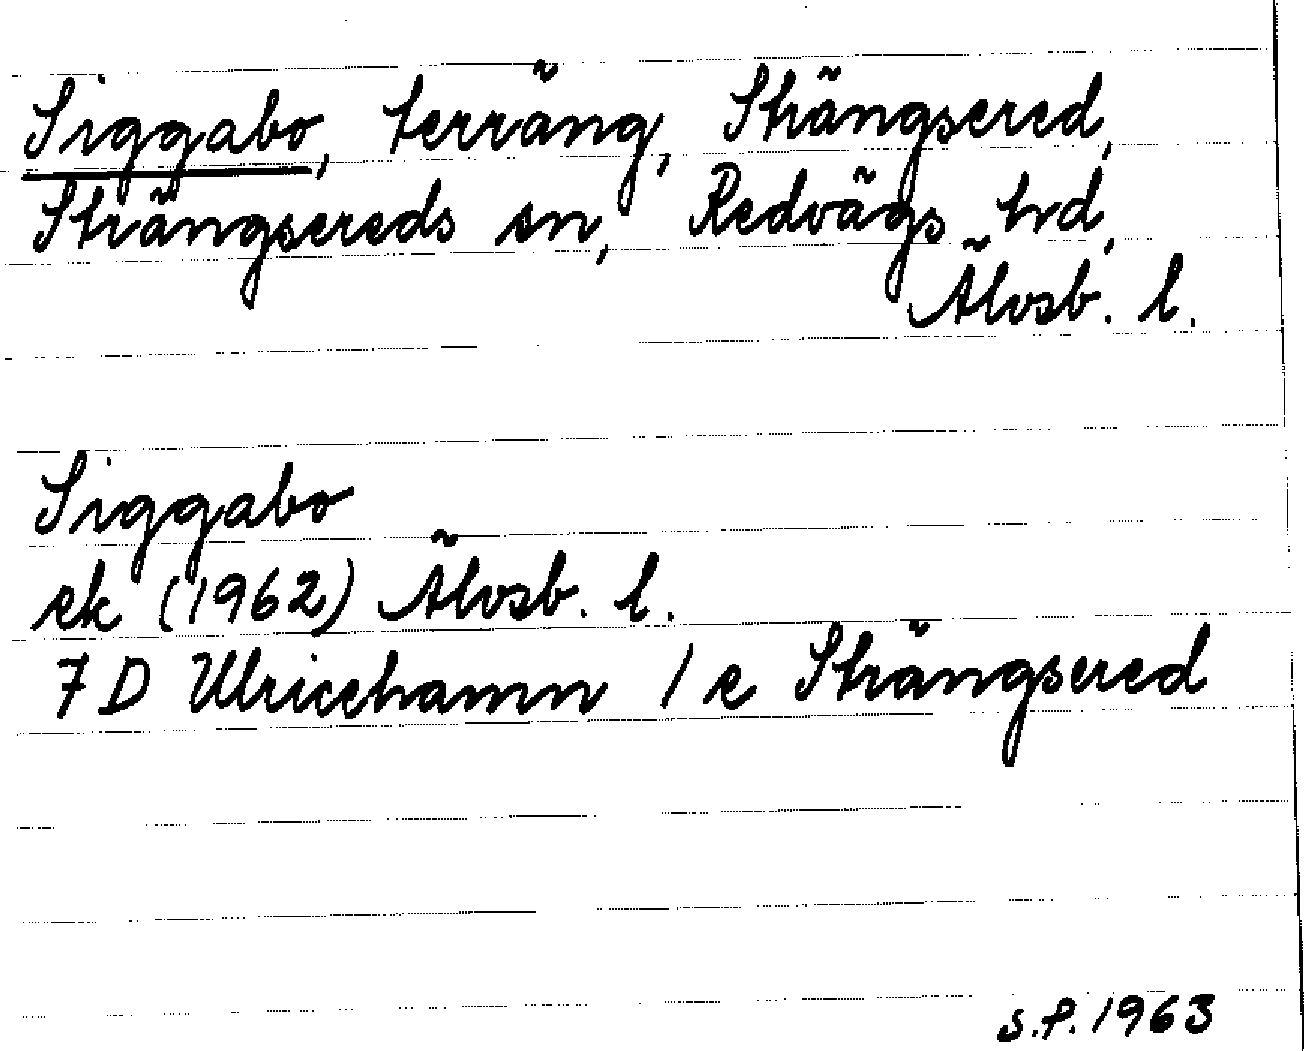 Siggabo, terräng, Strängsered,
Strängsereds sn, Redvägs hd,
Älvsb. l.
Siggabo
ek (1962) Älvsb. l.
7 D Ulricehamn 1 e Strängsered
S.P. 1963